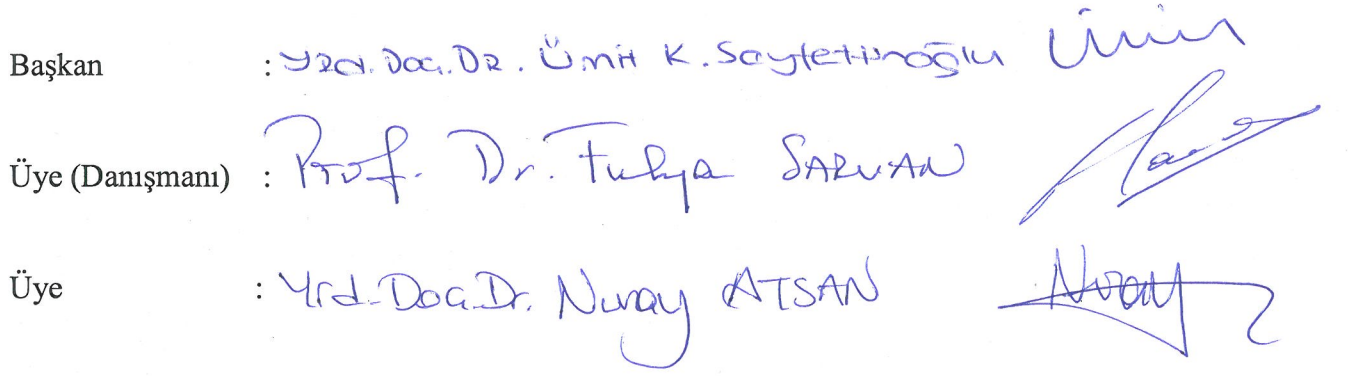 Başkan : Yrd. Doç. DR. Ümit K. Seyfettinoğlu Ümit
Üye (Danışmanı) : Prof. Dr. Fulya SARVAN
Üye : Yrd. Doç. Dr. Nuray ATSAN Nuray